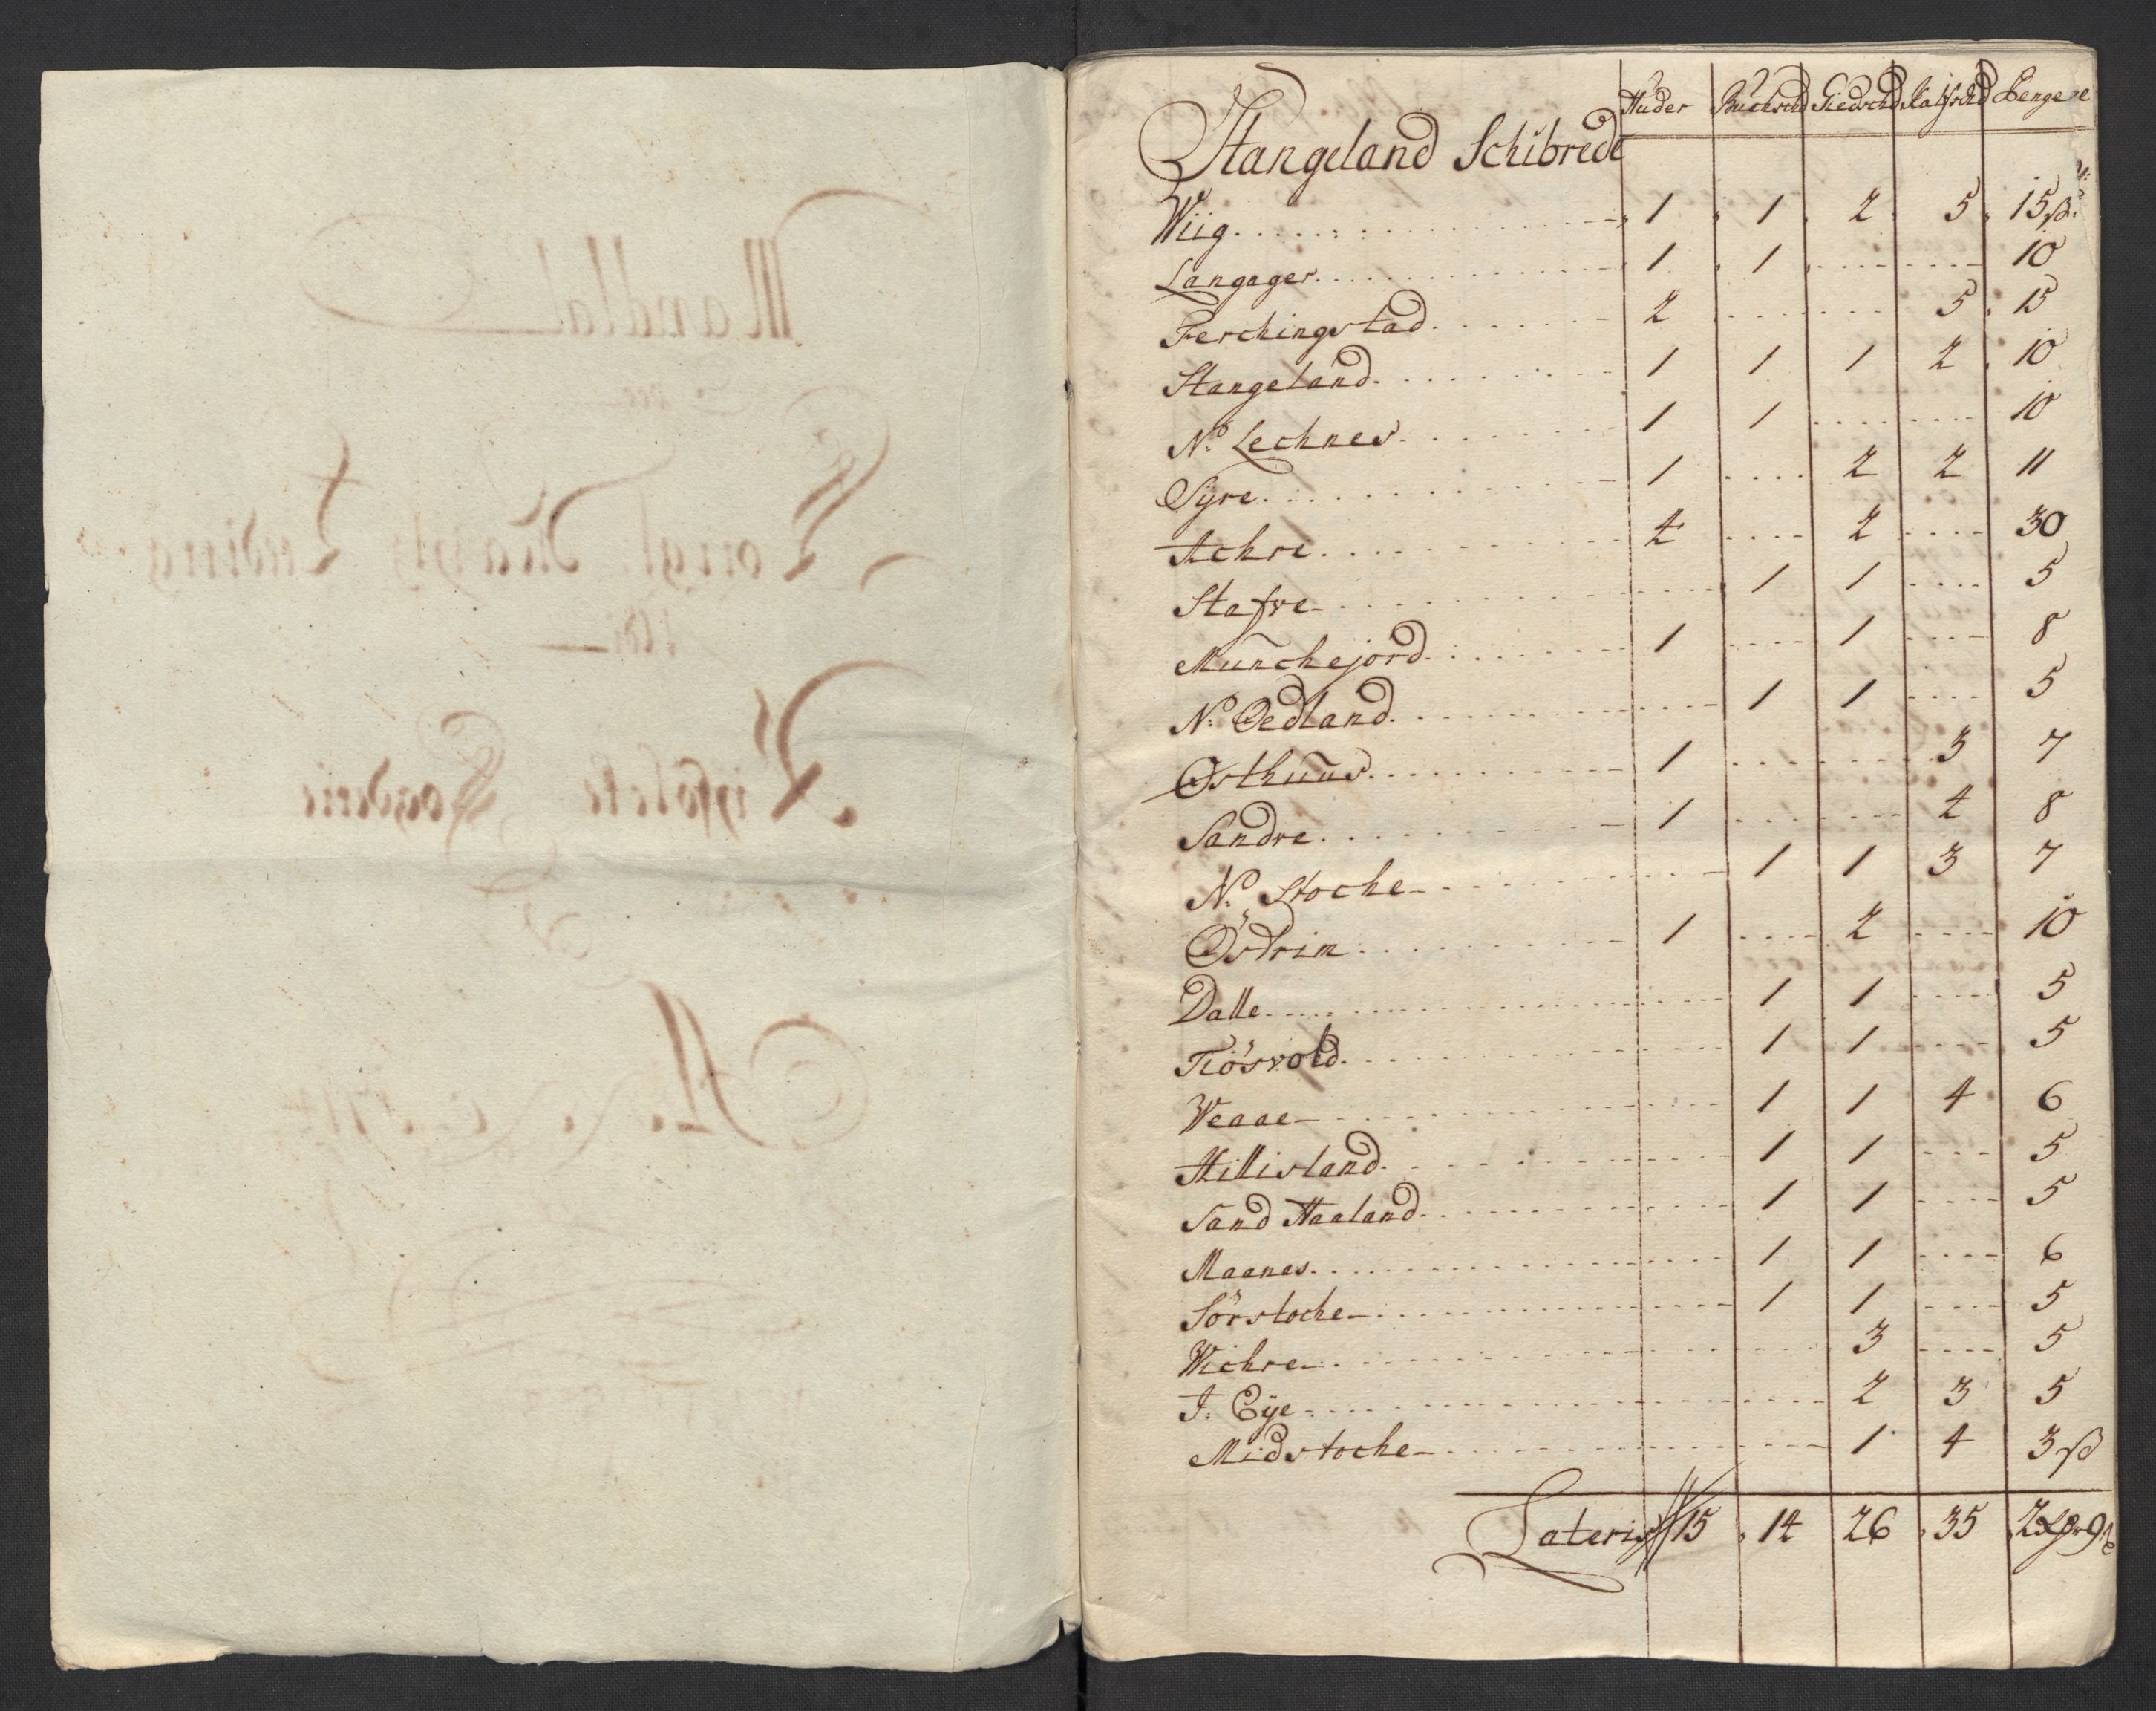 Huder Buckschd Giedschd Kalfschd Penge
Stangeland Schibrede
Wiig 1 1 2 5 15 ß
Langager 1 1 10
Ferchingstad 2 5 15
Stangeland 1 1 1 2 10
N: Lechnes 1 1 10
Syre 1 2 2 11
Achre 4 2 30
Stafre 1 1 5
Munchejord 1 1 8
N: Oedland 1 1 5
Østhuus 1 3 7
Sandre 1 4 8
N: Stoche 1 1 3 7
Östrim 1 2 10
Dalle 1 1 5
Tiösvold 1 1 5
Weaae 1 1 4 6
Hillisland 1 1 5
Sand Haaland 1 1 5
Maanes 1 1 6
Sörstoche 1 1 5
Wichre 3 5
I: Eÿe 2 3 5
Midstoche 1 4 3 ß
Lateris 15 14 26 35 2 9